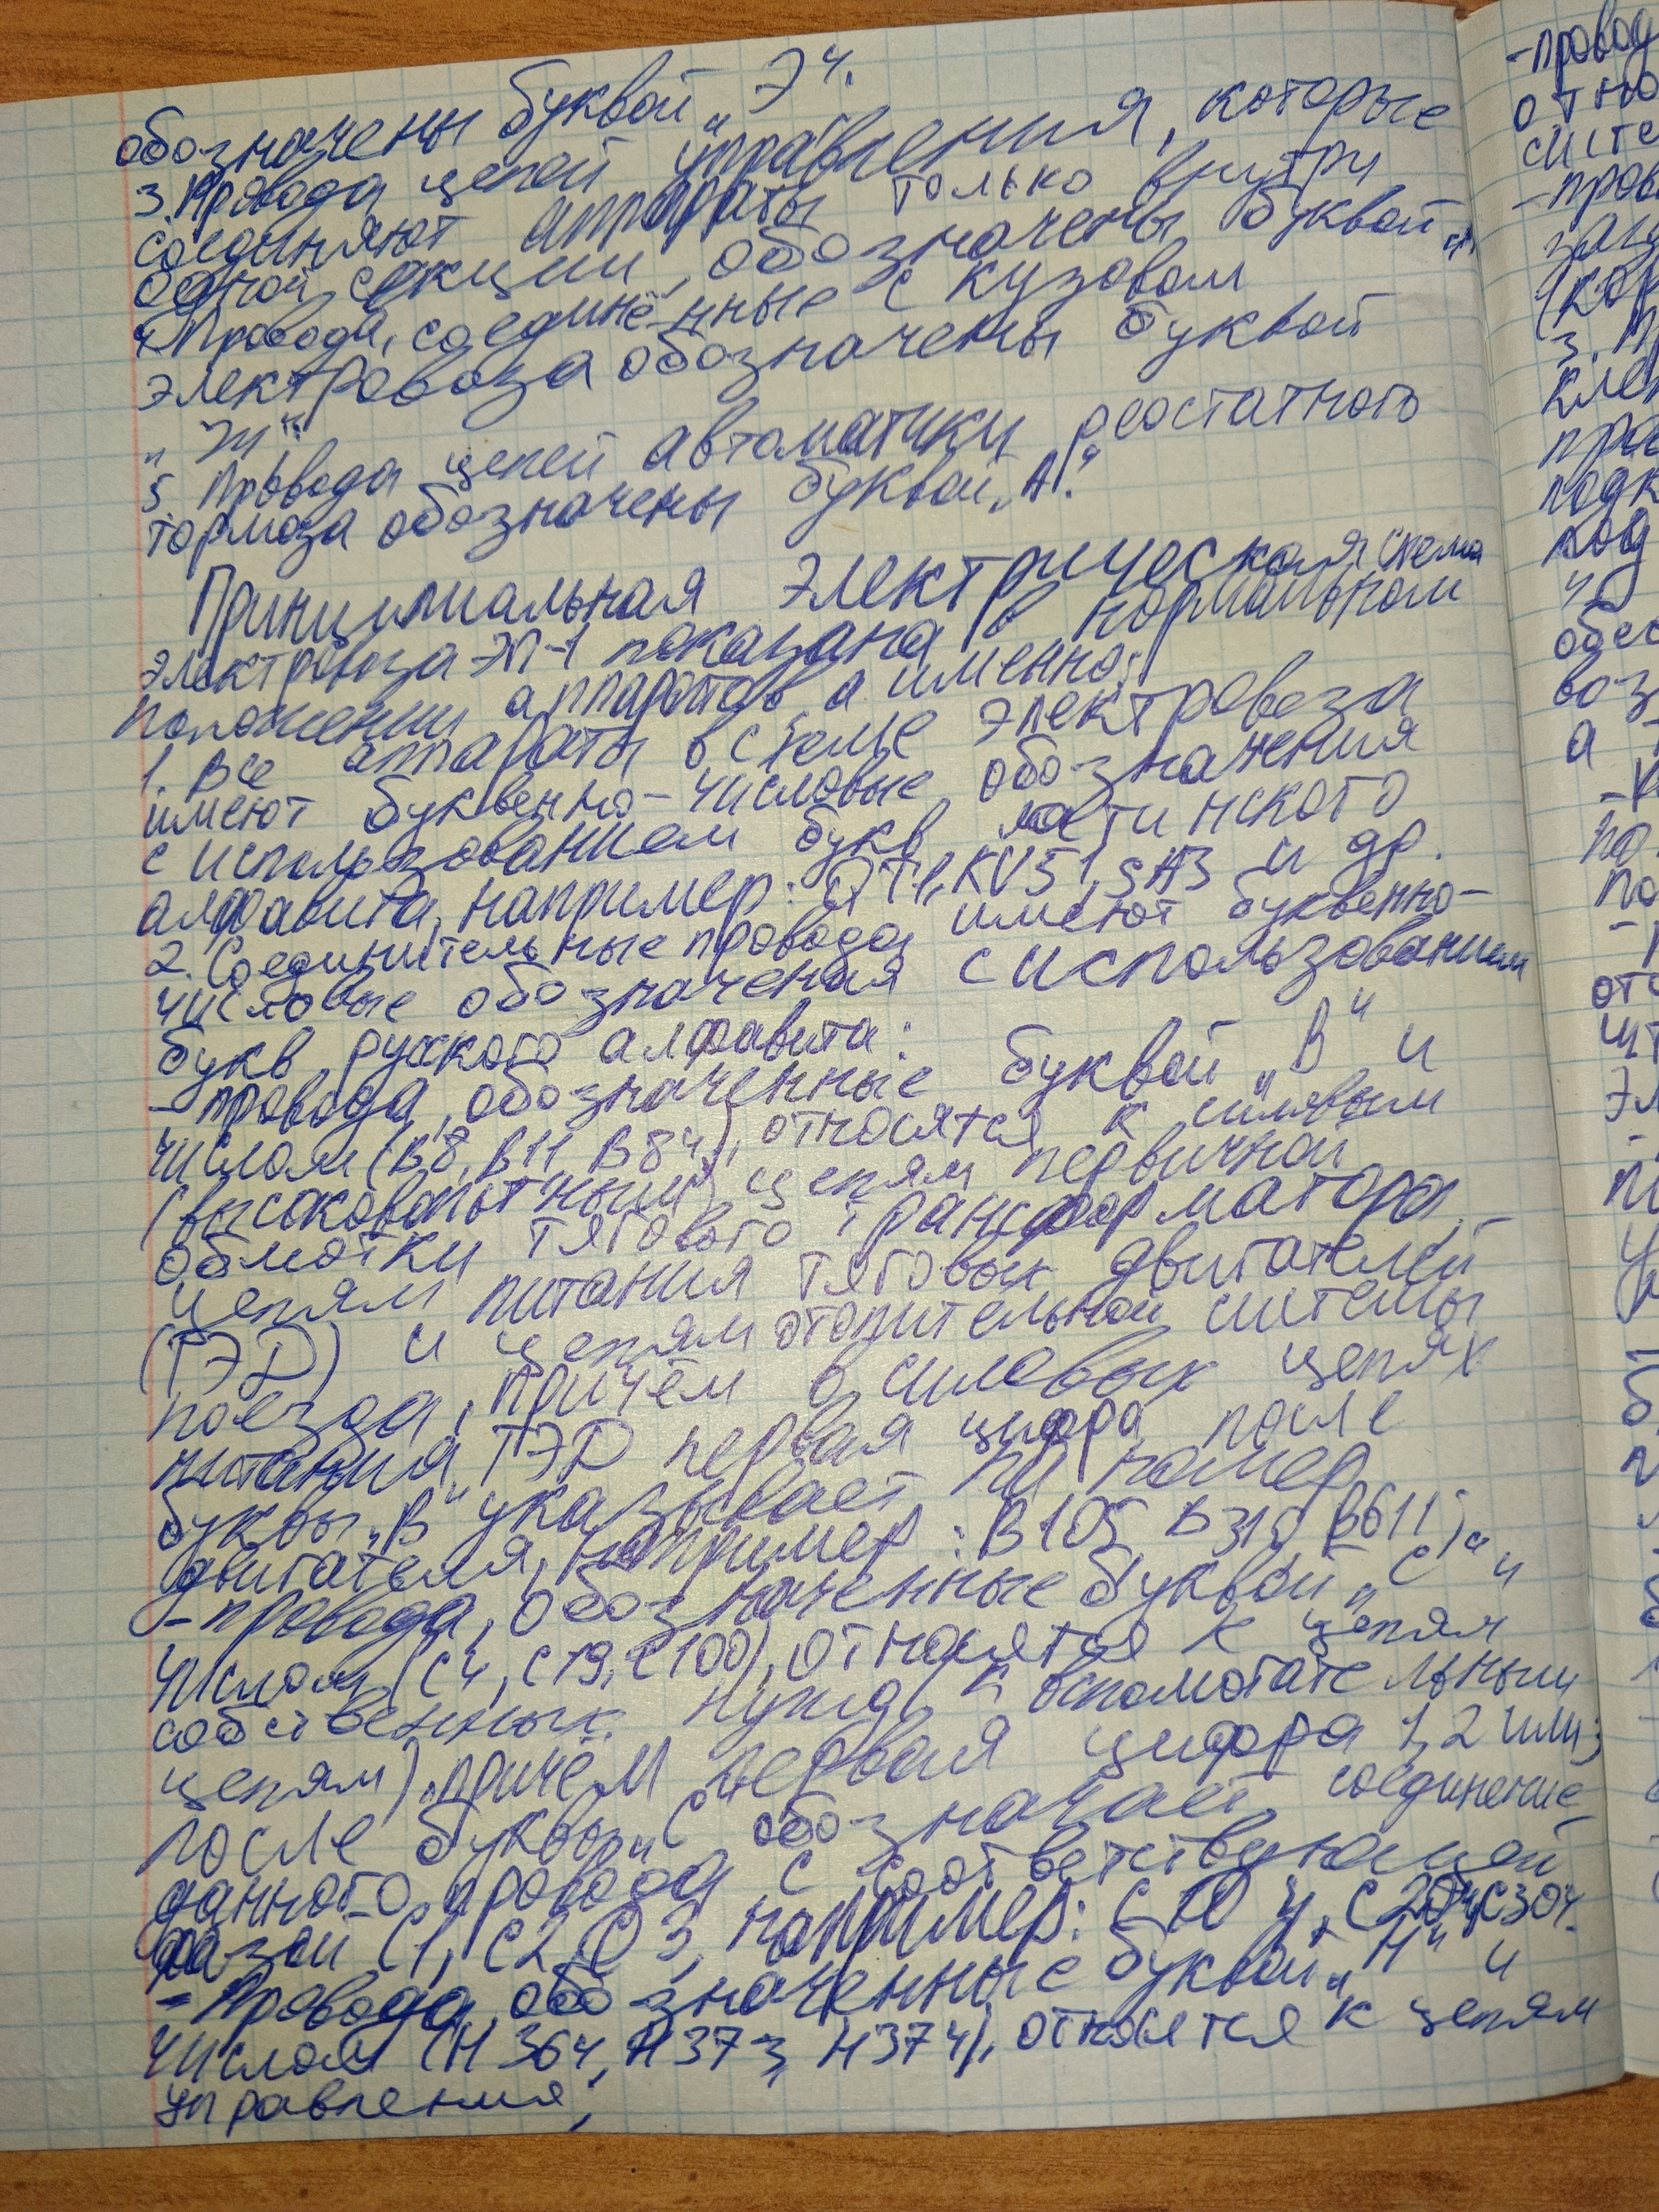 обозначены буквой „Э“.
3. Провода цепей управления, которые
соединяют аппараты только внутри
одной секции, обозначены буквой
4. Провода, соединённые с кузовом
электровоза обозначены буквой
„Ж“.
5. Провода цепей автоматики реостатного
тормоза обозначены буквой „А“.
Принципиальная электрическая схема
электровоза ЭП-1 показана в нормальном
положении аппаратов, а именно:
1. Все аппараты в схеме электровоза
имеют буквенно-числовые обозначения
с использованием букв латинского
алфавита, например: QT1, KV51, SA3 и др.
2. Соединительные провода имеют буквенно-
числовые обозначения с использованием
букв русского алфавита:
- провода, обозначенные буквой „В“ и
числом (В8, В11 В84), относятся к силовым
(высоковольтным) цепям первичной
обмотки тягового трансформатора,
цепям питания тяговых двигателей
(ТЭД) и цепям отопительной системы
поезда, причём в силовых цепях
питания ТЭД первая цифра после
буквы „В“ указывает на номер
двигателя, например: В105 В315 В611;
- провода, обозначенные буквой „С“ и
числом (С4, С19, С100), относятся к цепям
собственных нужд к вспомогательным
цепям), причём первая цифра 1, 2 или 3
после буквы „С“ обозначает соединение
данного провода с соответствующей
фазой С1, С2, С3, например: С104, С204, С304.
- Провода, обозначенные буквой „Н“ и
числом (Н364, Н373, Н374), относятся к цепям
управления;
- провод
отно
систе
- пров
(кор
3. П
клем
под
обес
воз
а
по
- 
отс
эл